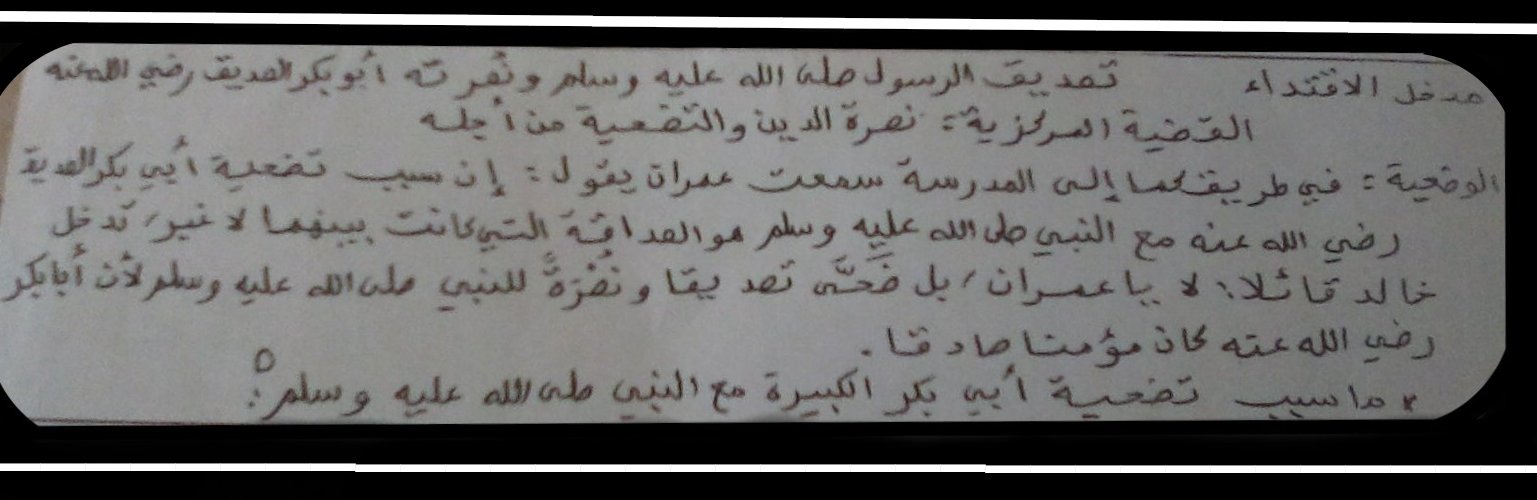 مدخل الاقتداء تصديق الرسول صلى الله عليه وسلم ونصرته أبو بكر الصديق رضي الله عنه
القضية المركزية: نصرة الدين والتضحية من أجله
الوضعية: في طريقكما إلى المدرسة سمعت عمران يقول: إن سبب تضحية أبي بكر الصديق
رضي الله عنه مع النبي صلى الله عليه وسلم هو الصداقة التي كانت بينهما لا غير، تدخل
خالد قائلا: لا يا عمران، بل ضَحَّى تصديقا ونُصْرَةً للنبي صلى الله عليه وسلم لأن أبا بكر
رضي الله عنه كان مؤمنا صادقا.
* ما سبب تضحية أبي بكر الكبيرة مع النبي صلى الله عليه وسلم؟